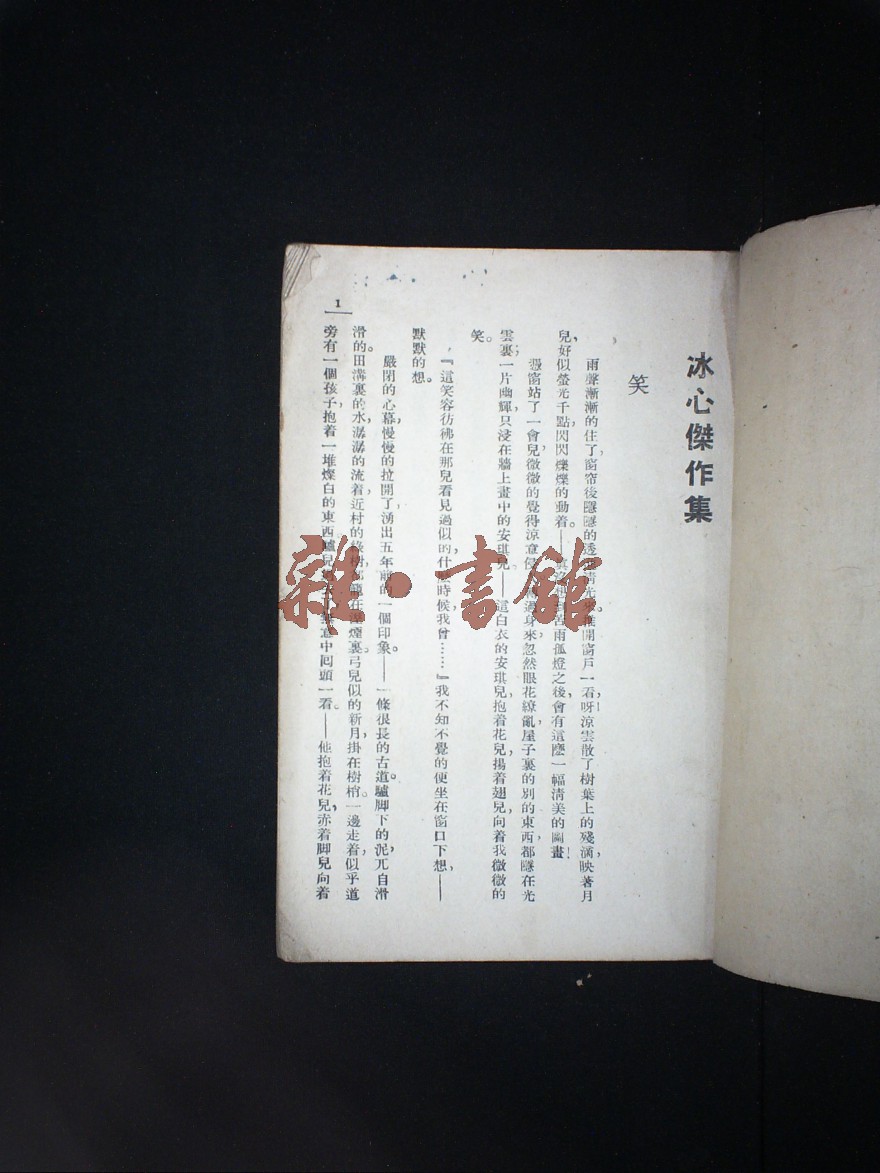 冰心傑作集
笑
雨聲漸漸的住了,窗帘後隱隱的透 清光 推開窗戶一看,呀!涼雲散了,樹葉上的殘滴,映著月
兒,好似螢光千點,閃閃爍爍的動着。—— 苦雨孤燈之後,會有這麼一幅清美的圖畫!
憑窗站了一會兒,微微的覺得涼意侵 過身來,忽然眼花繚亂,屋子裏的別的東西,都隱在光
雲裏;一片幽輝,只浸在牆上畫中的安琪兒——這白衣的安琪兒,抱着花兒,揚着翅兒,向着我微微的
笑。
『這笑容彷彿在那兒看見過似的,什麼時候,我曾……』我不知不覺的便坐在窗口下想,——
默默的想。
嚴閉的心幕,慢慢的拉開了,湧出五年前的一個印象。——一條很長的古道。驢脚下的泥,兀自滑
滑的。田溝裏的水,潺潺的流着,近村的綠樹,都籠在 煙裏。弓兒似的新月,掛在樹梢。一邊走着,似乎道
旁有一個孩子,抱着一堆燦白的東西,驢兒 意中回頭一看。——他抱着花兒,赤着脚兒,向着
1
雜·書館